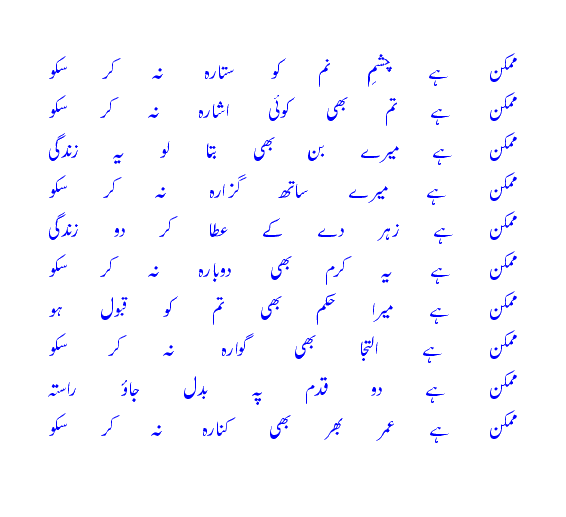 ممکن ہے چشمِ نم کو ستارہ نہ کر سکو
ممکن ہے تم بھی کوئی اشارہ نہ کر سکو
ممکن ہے میرے بن بھی بتا لو یہ زندگی
ممکن ہے میرے ساتھ گزارہ نہ کر سکو
ممکن ہے زہر دے کے عطا کر دو زندگی
ممکن ہے یہ کرم بھی دوبارہ نہ کر سکو
ممکن ہے میرا حکم بھی تم کو قبول ہو
ممکن ہے التجا بھی گوارہ نہ کر سکو
ممکن ہے دو قدم پہ بدل جاؤ راستہ
ممکن ہے عمر بھر بھی کنارہ نہ کر سکو